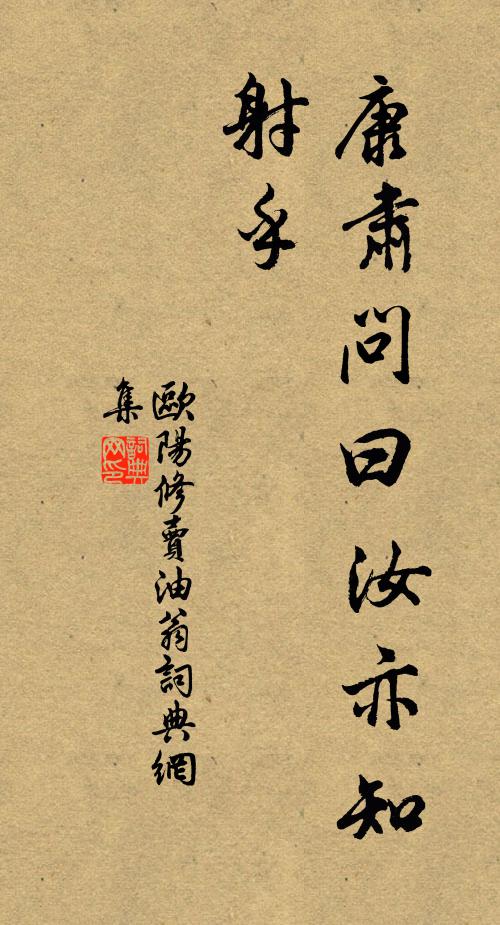 康肅問曰汝亦知
射乎
歐陽修賣油翁詞典網
集
詞典
网印